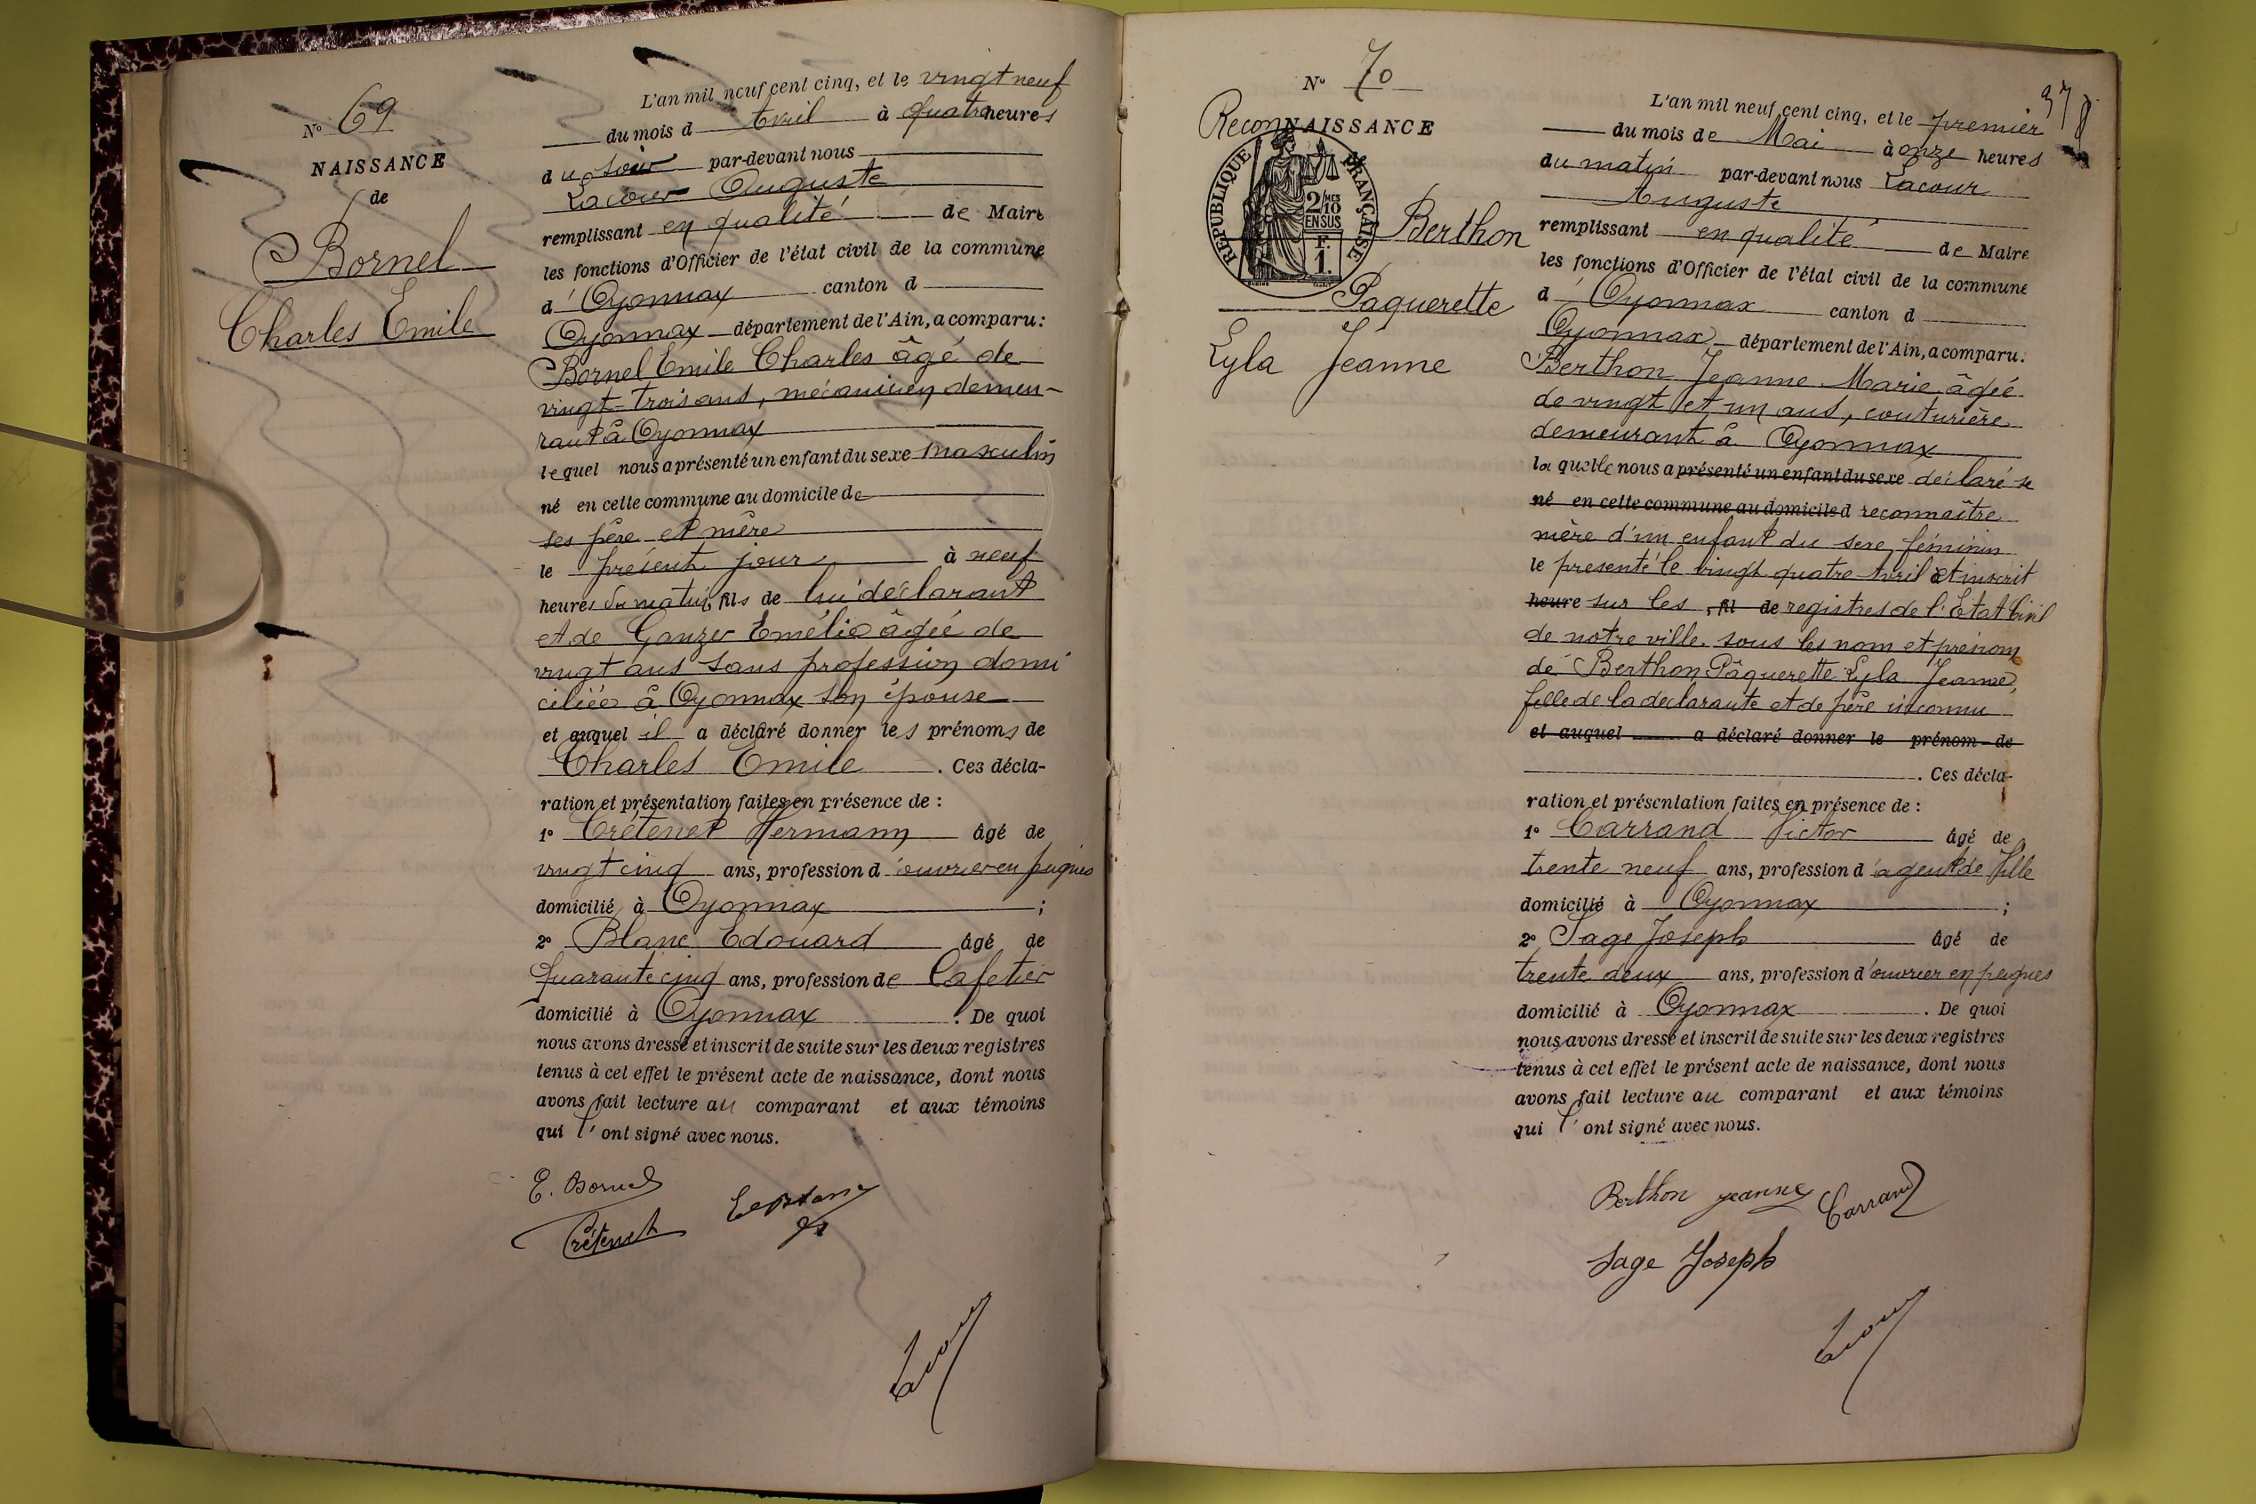 N° 69
NAISSANCE
de
Bornel
Charles Emile
L'an mil neuf cent cinq, et le vingt neuf
du mois d Avril à quatre heures
du soir par-devant nous
Lacour Auguste
remplissant en qualité de Maire
les fonctions d'Officier de l'état civil de la commune
d' Oyonnax canton d
Oyonnax département de l'Ain, a comparu:
Bornel Emile Charles âgé de
vingt-trois ans, mécanicien demeu-
rant à Oyonnax
lequel nous a présenté un enfant du sexe masculin
né en cette commune au domicile de
ses père et mère
le présent jour à neuf
heures du matin, fils de lui déclarant
et de Ganzer Emélie âgée de
vingt ans sans profession domi
ciliée à Oyonnax son épouse
et auquel il a déclaré donner les prénoms de
Charles Emile . Ces décla-
ration et présentation faites en présence de :
1° Crétenet Hermann âgé de
vingt cinq ans, profession d'ouvrier en peignes
domicilié à Oyonnax ;
2° Blanc Edouard âgé de
quarante cinq ans, profession de Cafetier
domicilié à Oyonnax . De quoi
nous avons dressé et inscrit de suite sur les deux registres
tenus à cet effet le présent acte de naissance, dont nous
avons fait lecture au comparant et aux témoins
qui l'ont signé avec nous.
E. Bornel
Crétenet
Lacour
N° 70
Reconnaissance
de
RÉPUBLIQUE FRANÇAISE
2/10 MES
EN SUS
F.
1.
Berthon
Paquerette
Lyla Jeanne
37
L'an mil neuf cent cinq, et le premier
du mois de Mai à onze heures
du matin par-devant nous Lacour
Auguste
remplissant en qualité de Maire
les fonctions d'Officier de l'état civil de la commune
d' Oyonnax canton d
Oyonnax département de l'Ain, a comparu.
Berthon Jeanne Marie âgée
de vingt et un ans, couturière
demeurant à Oyonnax
la quelle nous a présenté un enfant du sexe déclaré se
né en cette commune au domicile d reconnaître
mère d'un enfant du sexe féminin
le présenté le vingt quatre Avril et inscrit
heure sur les , fil de registres de l'Etat Civil
de notre ville sous les nom et prénom
de Berthon Pâquerette Lyla Jeanne,
fille de la déclarante et de père inconnu
et auquel a déclaré donner le prénom de
. Ces décla-
ration et présentation faites en présence de :
1° Carrand Victor âgé de
trente neuf ans, profession d'agent de Ville
domicilié à Oyonnax ;
2° Sage Joseph âgé de
trente deux ans, profession d'ouvrier en peignes
domicilié à Oyonnax . De quoi
nous avons dressé et inscrit de suite sur les deux registres
tenus à cet effet le présent acte de naissance, dont nous
avons fait lecture au comparant et aux témoins
qui l'ont signé avec nous.
Berthon Jeanne Carrand
Sage Joseph
Lacour